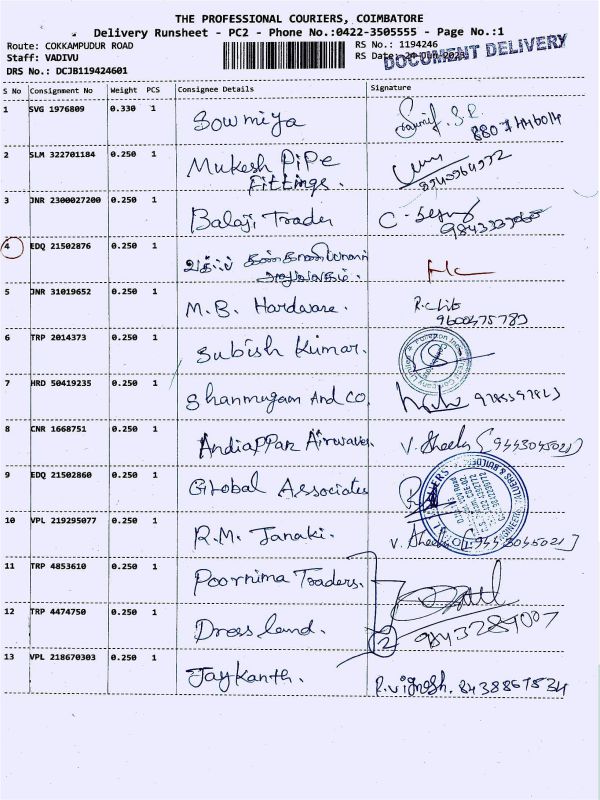 THE PROFESSIONAL COURIERS, COIMBATORE
Delivery Runsheet - PC2 - Phone No.:0422-3505555 - Page No.:1
Route: COKKAMPUDUR ROAD
RS No.: 1194246
Staff: VADIVU
RS Date:
DOCUMENT DELIVERY
DRS No.: DCJB119424601
S No Consignment No Weight PCS Consignee Details Signature
1 SVG 1976809 0.330 1 Sowmiya
2 SLM 322701184 0.250 1 Mukesh Pipe
Fittings.
8940964972
3 JNR 2300027200 0.250 1 Balaji Trader
4 EDQ 21502876 0.250 1
5 JNR 31019652 0.250 1 M.B. Hardware.
9600475789
6 TRP 2014373 0.250 1 Subish Kumar.
7 HRD 50419235 0.250 1 Shanmugam And Co.
8 CNR 1668751 0.250 1 Andiappan Airwaves V. Sheela (9443045021)
9 EDQ 21502860 0.250 1 Global Associates
10 VPL 219295077 0.250 1 R.M. Janaki. V. Sheela [9443045021]
11 TRP 4853610 0.250 1 Poornima Traders.
12 TRP 4474750 0.250 1 Dress land. 2 9843289007
13 VPL 218670303 0.250 1 Jaykanth. R.Vignesh. 8438867534